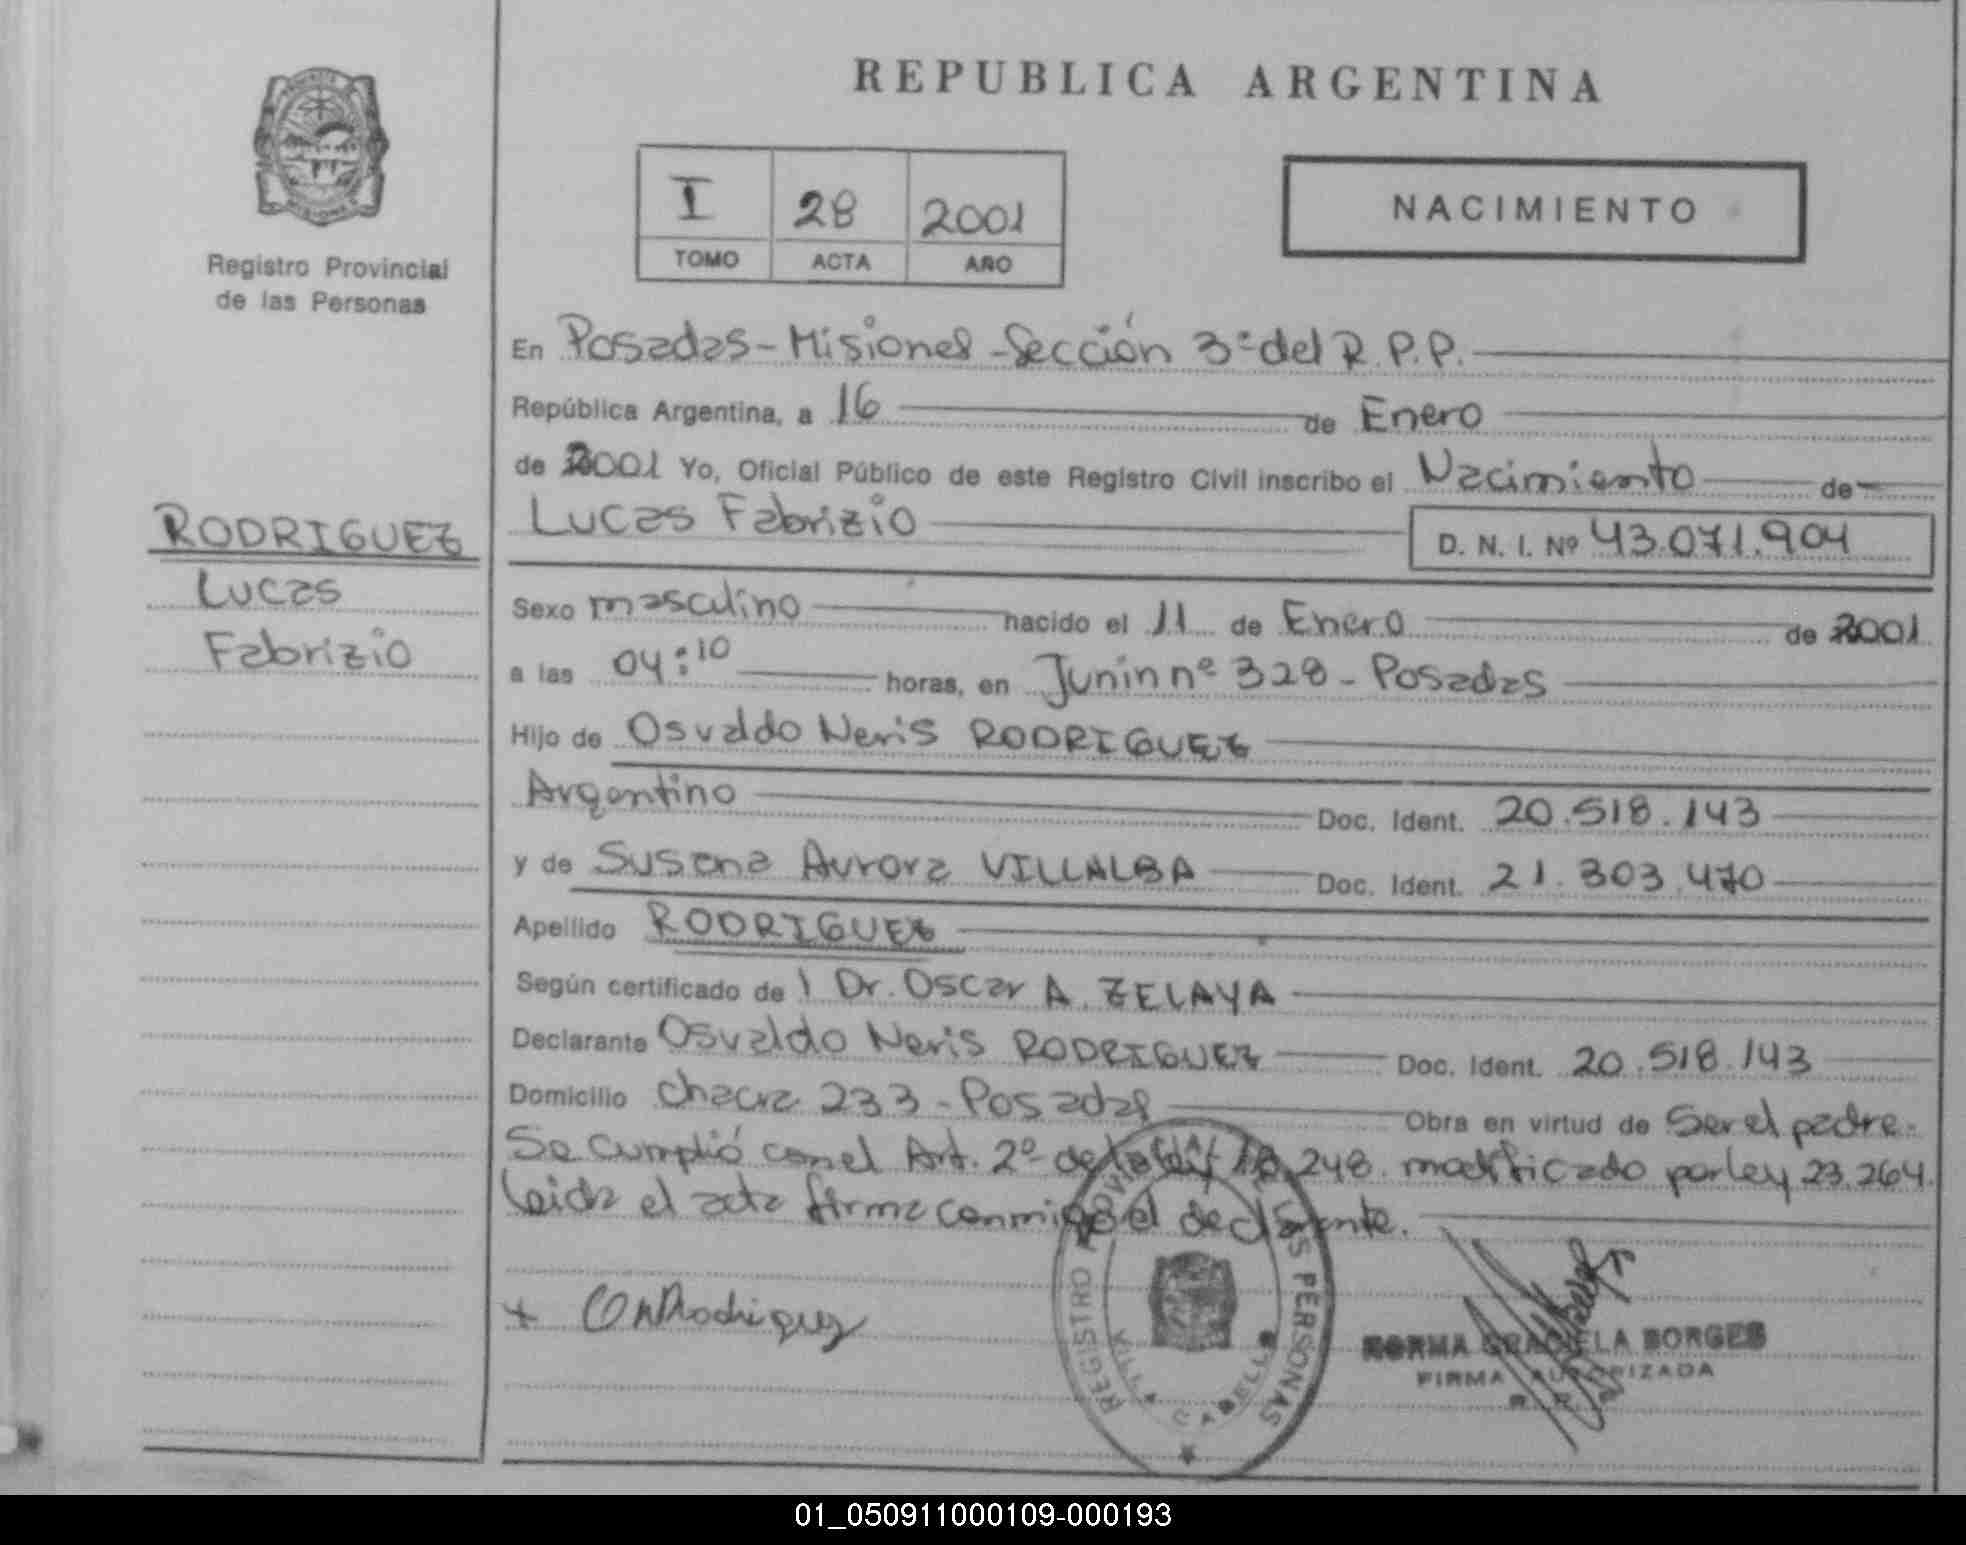 REPUBLICA ARGENTINA
Registro Provincial
de las Personas
I 28 2001
TOMO ACTA AÑO
NACIMIENTO
RODRIGUEZ
Lucas
Fabrizio
En Posadas - Misiones - Sección 3ª del R.P.P.
República Argentina, a 16 de Enero
de 2001 Yo, Oficial Público de este Registro Civil inscribo el Nacimiento de
Lucas Fabrizio D. N. I. Nº 43.071.904
Sexo masculino nacido el 11 de Enero de 2001
a las 04:10 horas, en Junín nº 328 - Posadas
Hijo de Osvaldo Neris RODRIGUEZ
Argentino Doc. Ident. 20.518.143
y de Susana Aurora VILLALBA Doc. Ident. 21.303.470
Apellido RODRIGUEZ
Según certificado de l Dr. Oscar A. ZELAYA
Declarante Osvaldo Neris RODRIGUEZ Doc. Ident. 20.518.143
Domicilio Chacra 233 - Posadas Obra en virtud de Ser el padre.
Se cumplió con el Art. 2º de la ley 18.248 modificado por ley 23.264.
Leida el acta firma conmigo el declarante.
REGISTRO PROVINCIAL DE LAS PERSONAS
VILLA CABELLO
NORMA GRACIELA BORGES
FIRMA AUTORIZADA
01_050911000109-000193